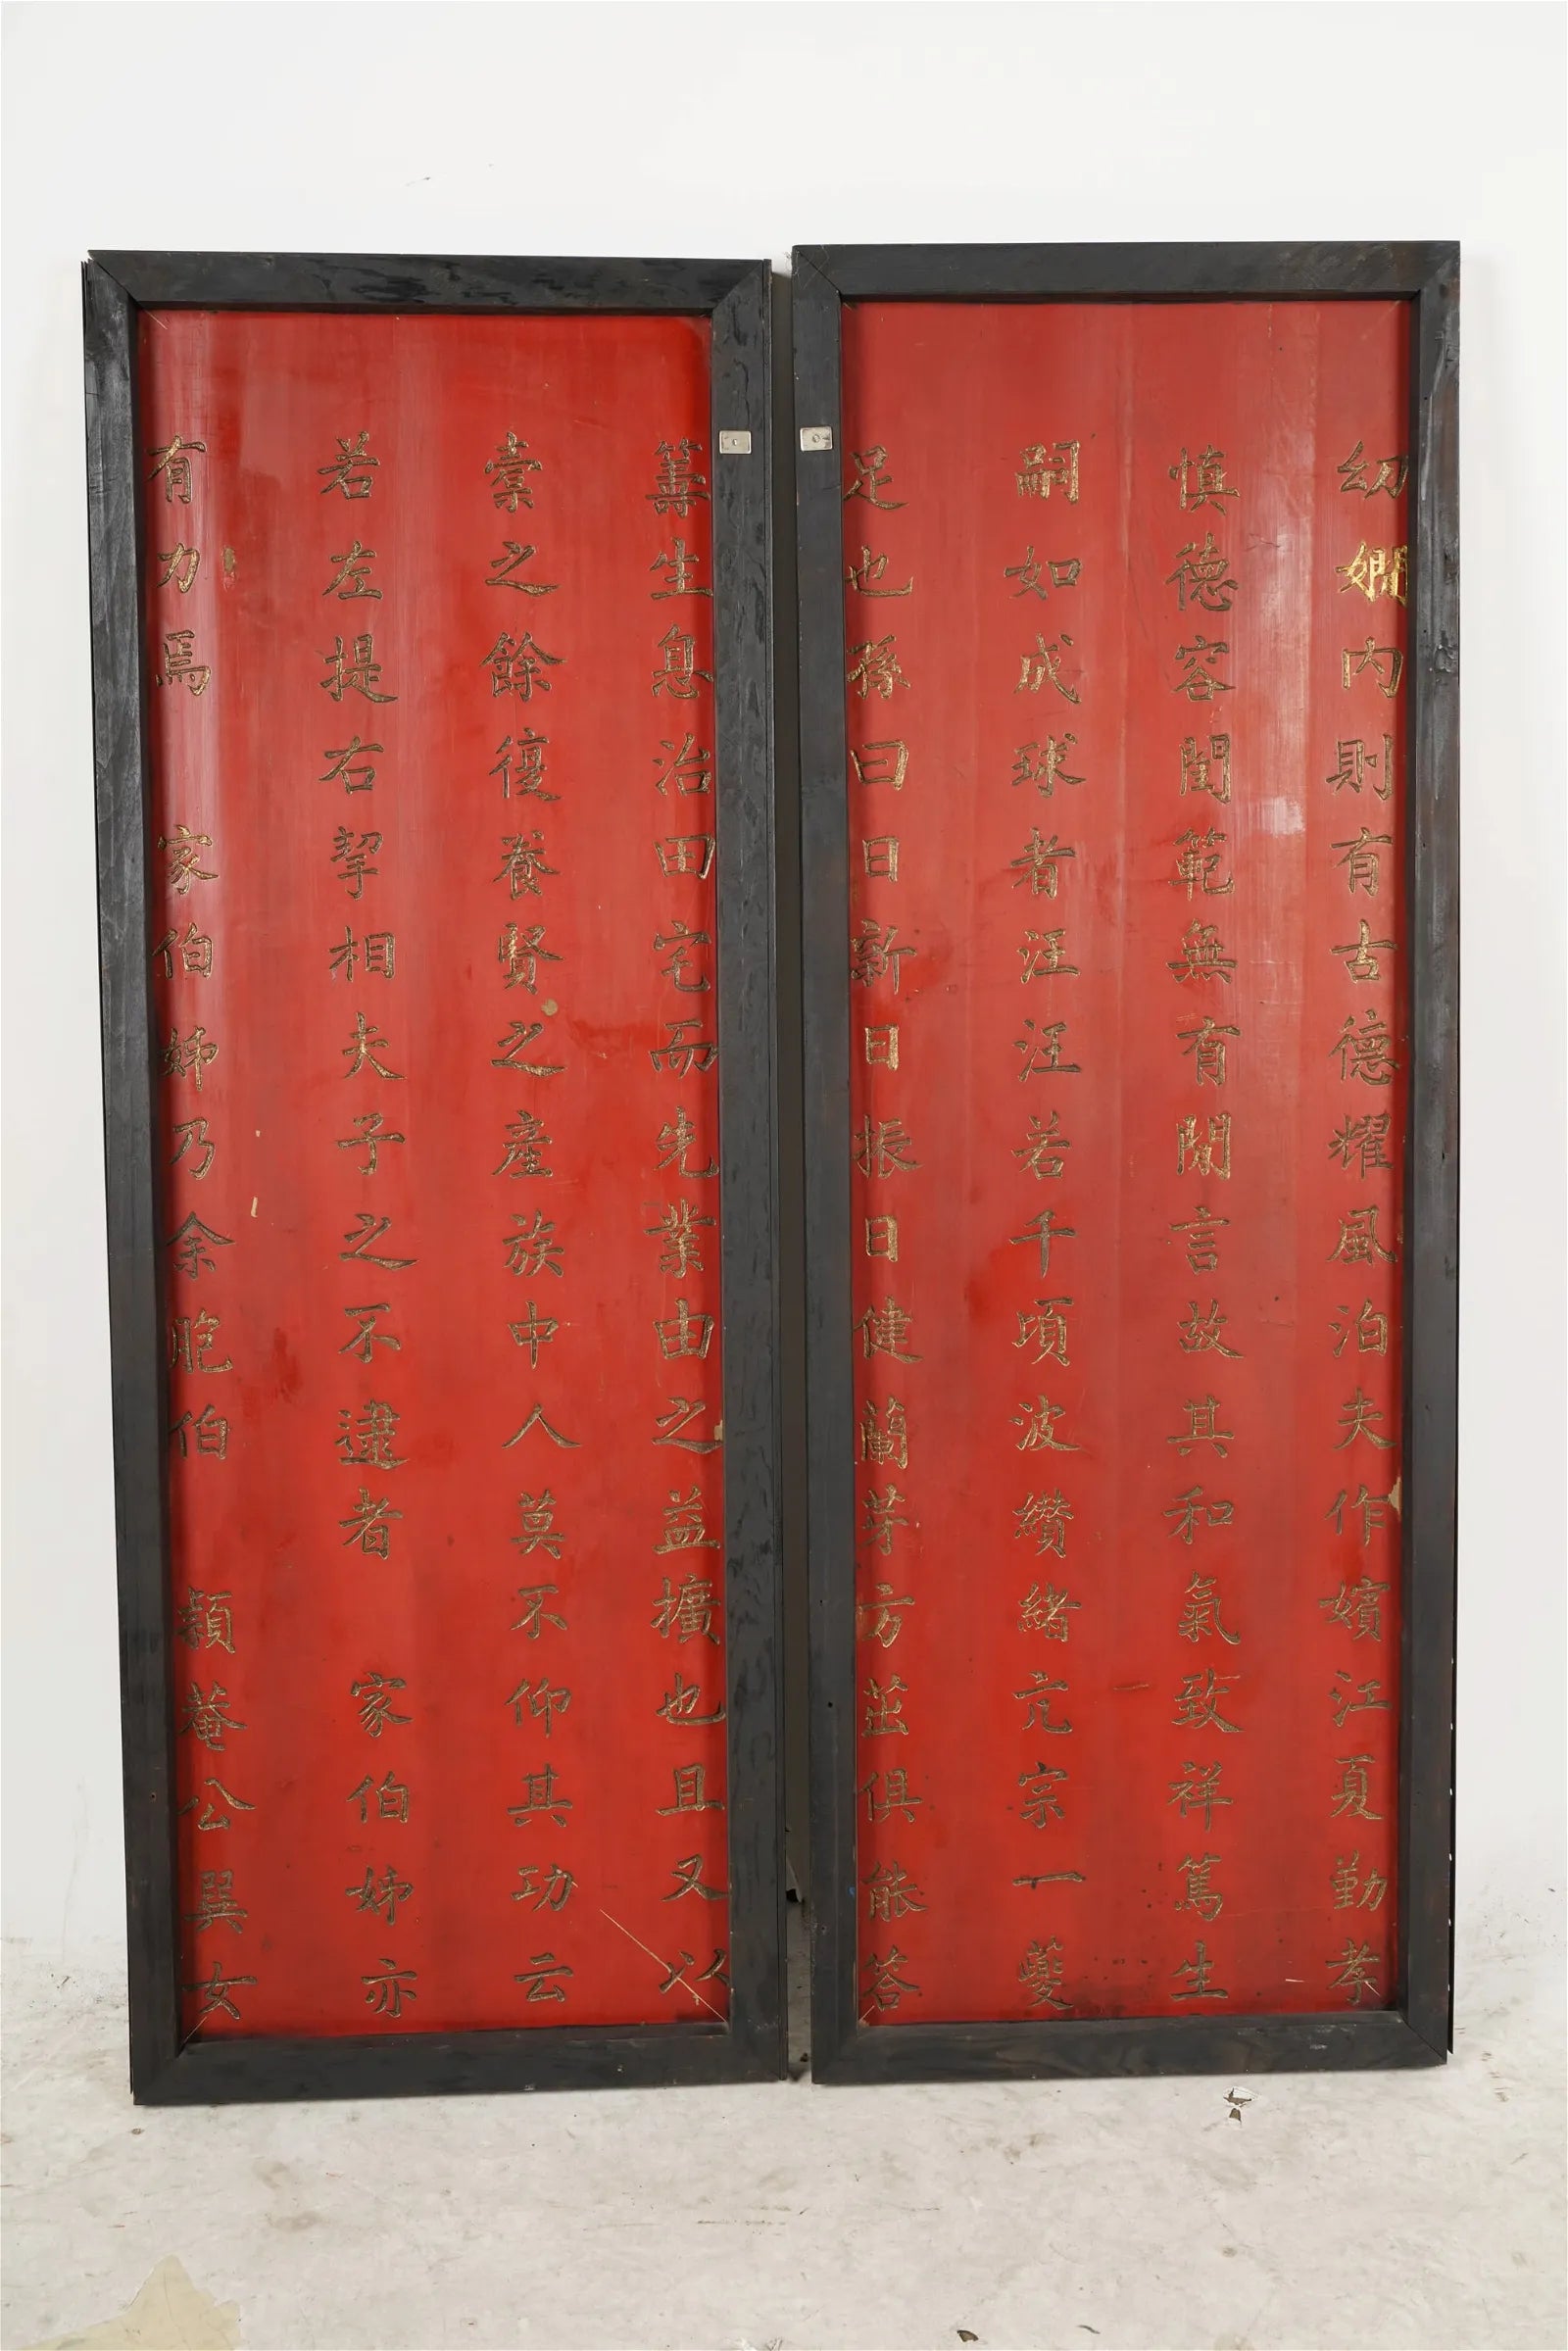 幼嫻内則有古德耀風泊夫作嬪江夏勤孝
慎德容閨範無有閒言故其和氣致祥篤生
嗣如成球者汪汪若千頃波纘緒亢宗一夔
足也孫曰日新日振日健蘭芽方茁俱能答
籌生息治田宅而先業由之益擴也且又以
之餘復養賢之産族中人莫不仰其功云
若左提右挈相夫子之不逮者 家伯姊亦
有力焉 家伯姊乃余胞伯 頴菴公巽女